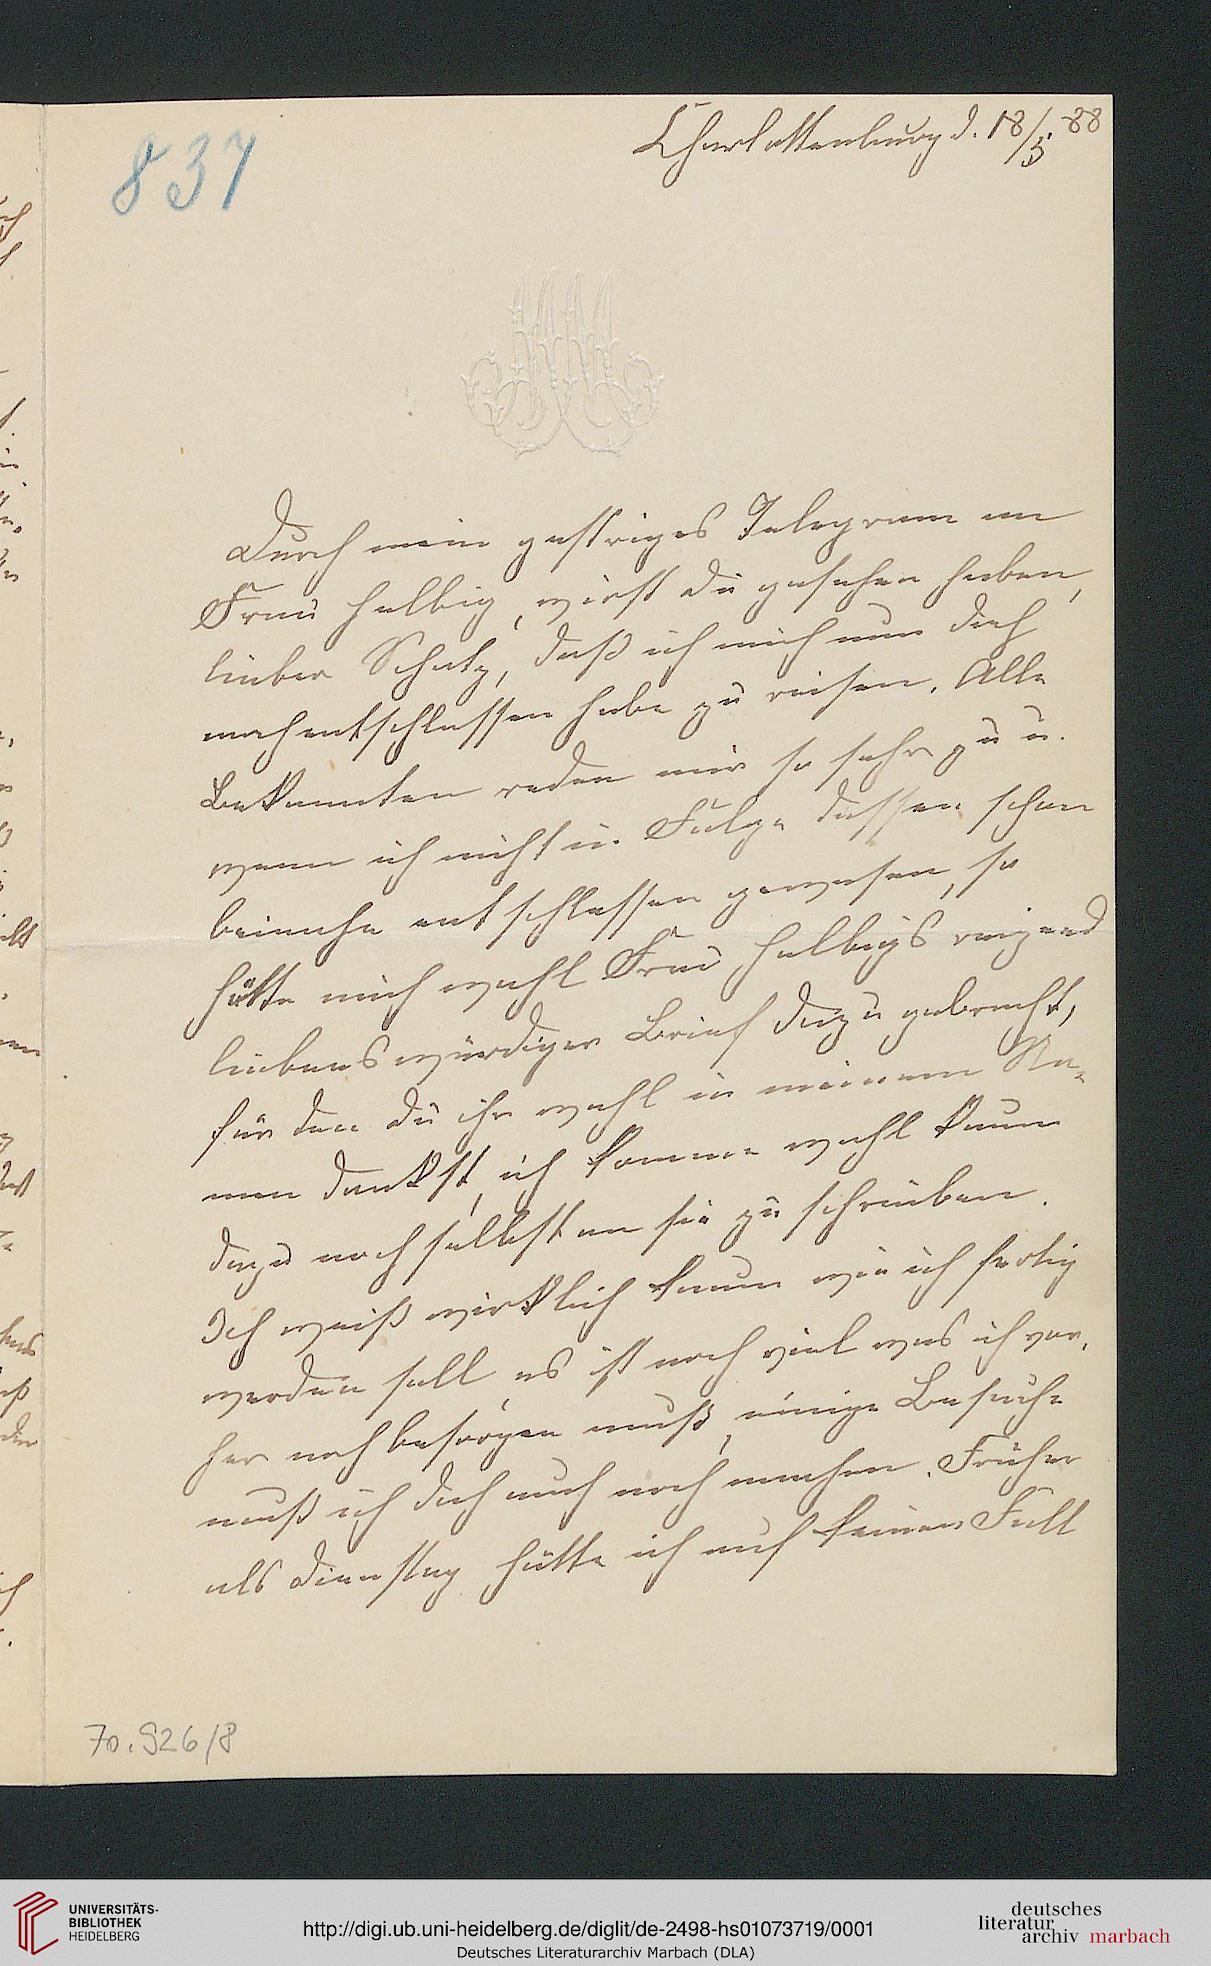 837
Charlottenburg d. 18/5. 88
Durch mein gestriges Telegram an
Frau Helbig, wirst du gesehen haben,
lieber Schatz, daß ich mich nun doch
noch entschlossen habe zu reisen. Alle
Bekannten reden mir so sehr zu u.
wenn ich nicht in Folge dessen schon
beinahe entschlossen gewesen, so
hätte mich wohl Frau Helbigs reizend
liebenswürdiger Brief dazu gebracht,
für den du ihr wohl in meinem Na-
men dankst, ich komme wohl kaum
dazu noch selbst an sie zu schreiben.
Ich weiß wirklich kaum wie ich fertig
werden soll, es ist noch viel was ich vor-
her noch besorgen muß, einige Besuche
muß ich doch auch noch machen. Früher
als Dienstag hätte ich auf keinen Fall
70.926/8
UNIVERSITÄTS-
BIBLIOTHEK
HEIDELBERG
http://digi.ub.uni-heidelberg.de/diglit/de-2498-hs01073719/0001
Deutsches Literaturarchiv Marbach (DLA)
deutsches
literatur
archiv marbach